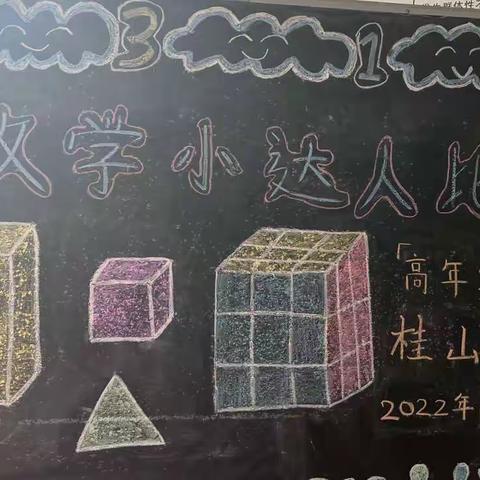 3 1
数学小达人比
「高年
桂山
2022年